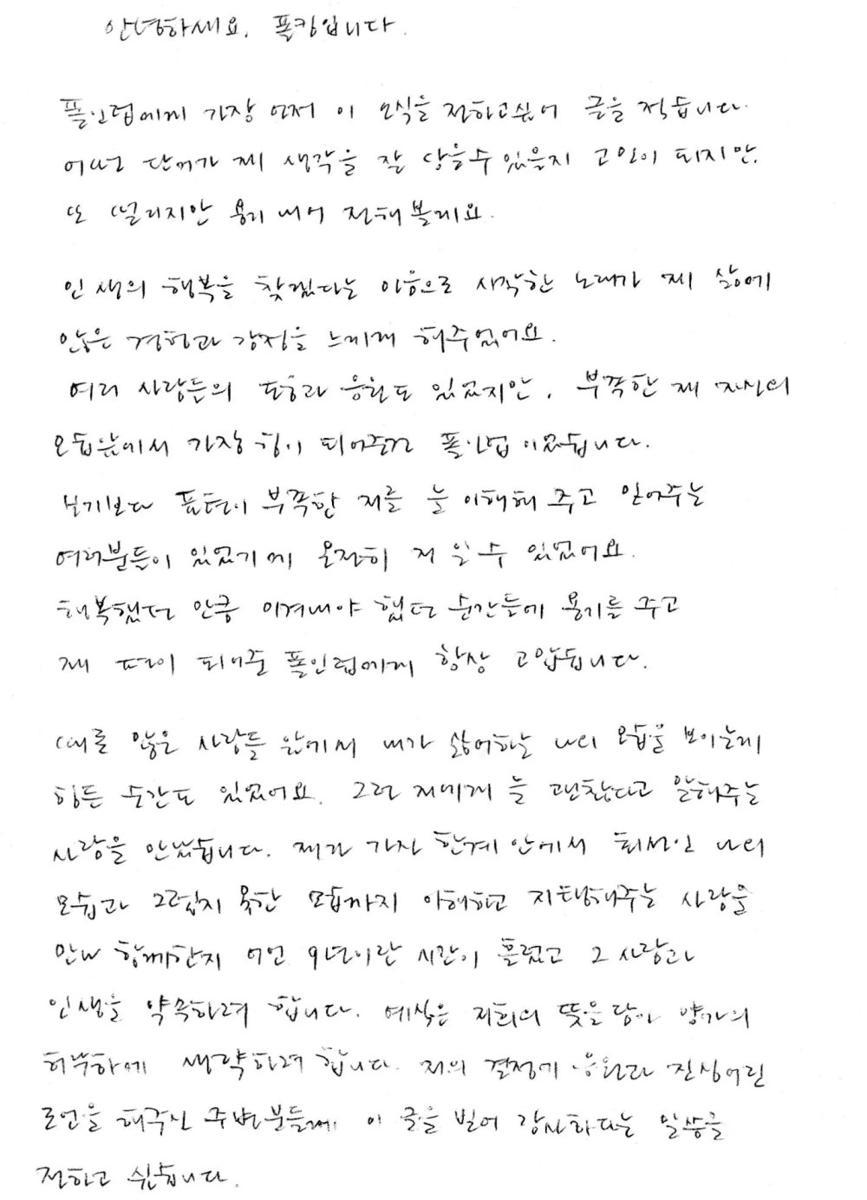 안녕하세요. 폴킴입니다.
폴인럽에게 가장 먼저 이 소식을 전하고싶어 글을 적습니다.
어떤 단어가 제 생각을 잘 담을수 있을지 고민이 되지만,
또 떨리지만 용기 내어 전해볼게요.
인생의 행복을 찾겠다는 마음으로 시작한 노래가 제 삶에
많은 경험과 감정을 느끼게 해주었어요.
여러 사람들의 도움과 응원도 있었지만, 부족한 제 자신의
모습앞에서 가장 힘이 되어준건 폴인럽이었습니다.
보기보다 표현이 부족한 저를 늘 이해해 주고 믿어주는
여러분들이 있었기에 온전히 저 일 수 있었어요.
행복했던 만큼 이겨내야 했던 순간들에 용기를 주고
제 편이 되어준 폴인럽에게 항상 고맙습니다.
때론 많은 사람들 앞에서 내가 싫어하는 나의 모습을 보이는게
힘든 순간도 있었어요. 그런 저에게 늘 괜찮다고 말해주는
사람을 만났습니다. 제가 가진 한계 안에서 최선인 나의
모습과 그렇지 못한 모습까지 이해하고 지탱해주는 사람을
만나 함께한지 어언 9년이란 시간이 흘렀고 그 사람과
인생을 약속하려 합니다. 예식은 저희의 뜻을 담아 양가의
허락하에 생략하려 합니다. 저의 결정에 응원과 진심어린
조언을 해주신 주변분들께 이 글을 빌어 감사하다는 말씀을
전하고 싶습니다.